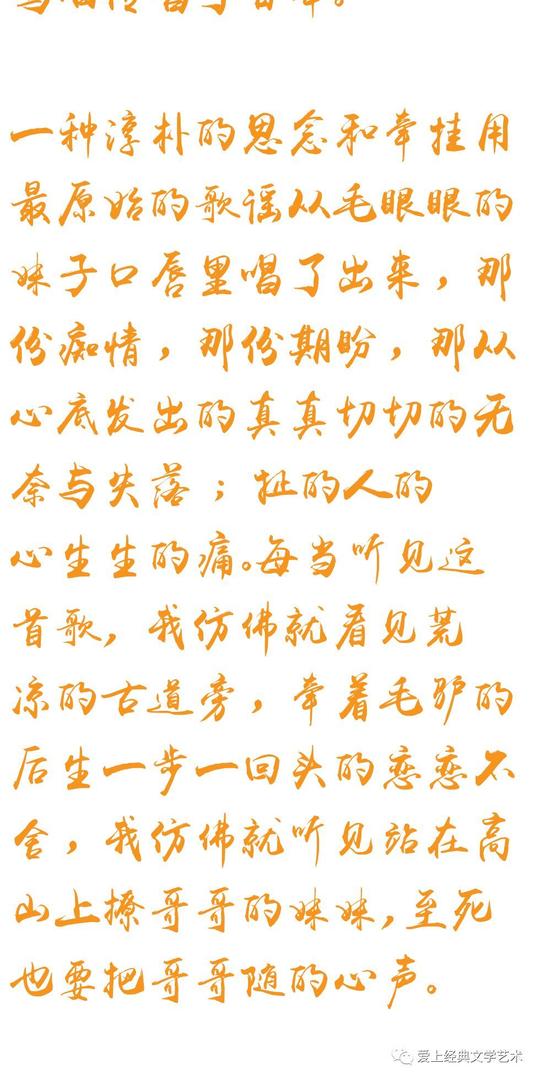 一种淳朴的思念和牵挂用
最原始的歌谣从毛眼眼的
妹子口唇里唱了出来，那
份痴情，那份期盼，那从
心底发出的真真切切的无
奈与失落；扯的人的
心生生的痛。每当听见这
首歌，我仿佛就看见荒
凉的古道旁，牵着毛驴的
后生一步一回头的恋恋不
舍，我仿佛就听见站在高
山上撩哥哥的妹妹，至死
也要把哥哥随的心声。
爱上经典文学艺术